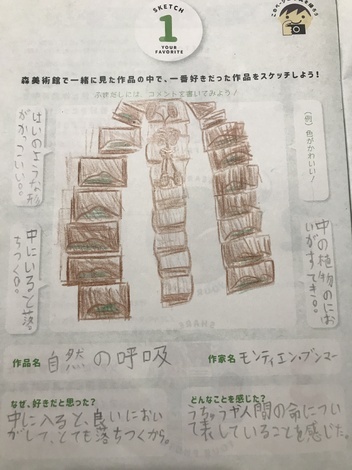 SKETCH
1
YOUR
FAVORITE
森美術館で一緒に見た作品の中で、一番好きだった作品をスケッチしよう！
ふきだしには、コメントを書いてみよう！
(例) 色がかわいい！
はいのような形
がかっこいい。
中にいると落
ちつく。
中の植物のにお
いがすてき。
作品名 自然の呼吸
作家名 モンティエン・ブンマー
なぜ、好きだと思った？
中に入ると、良いにおい
がして、とても落ちつくから。
どんなことを感じた？
うちゅうや人間の命につい
て表していることを感じた。